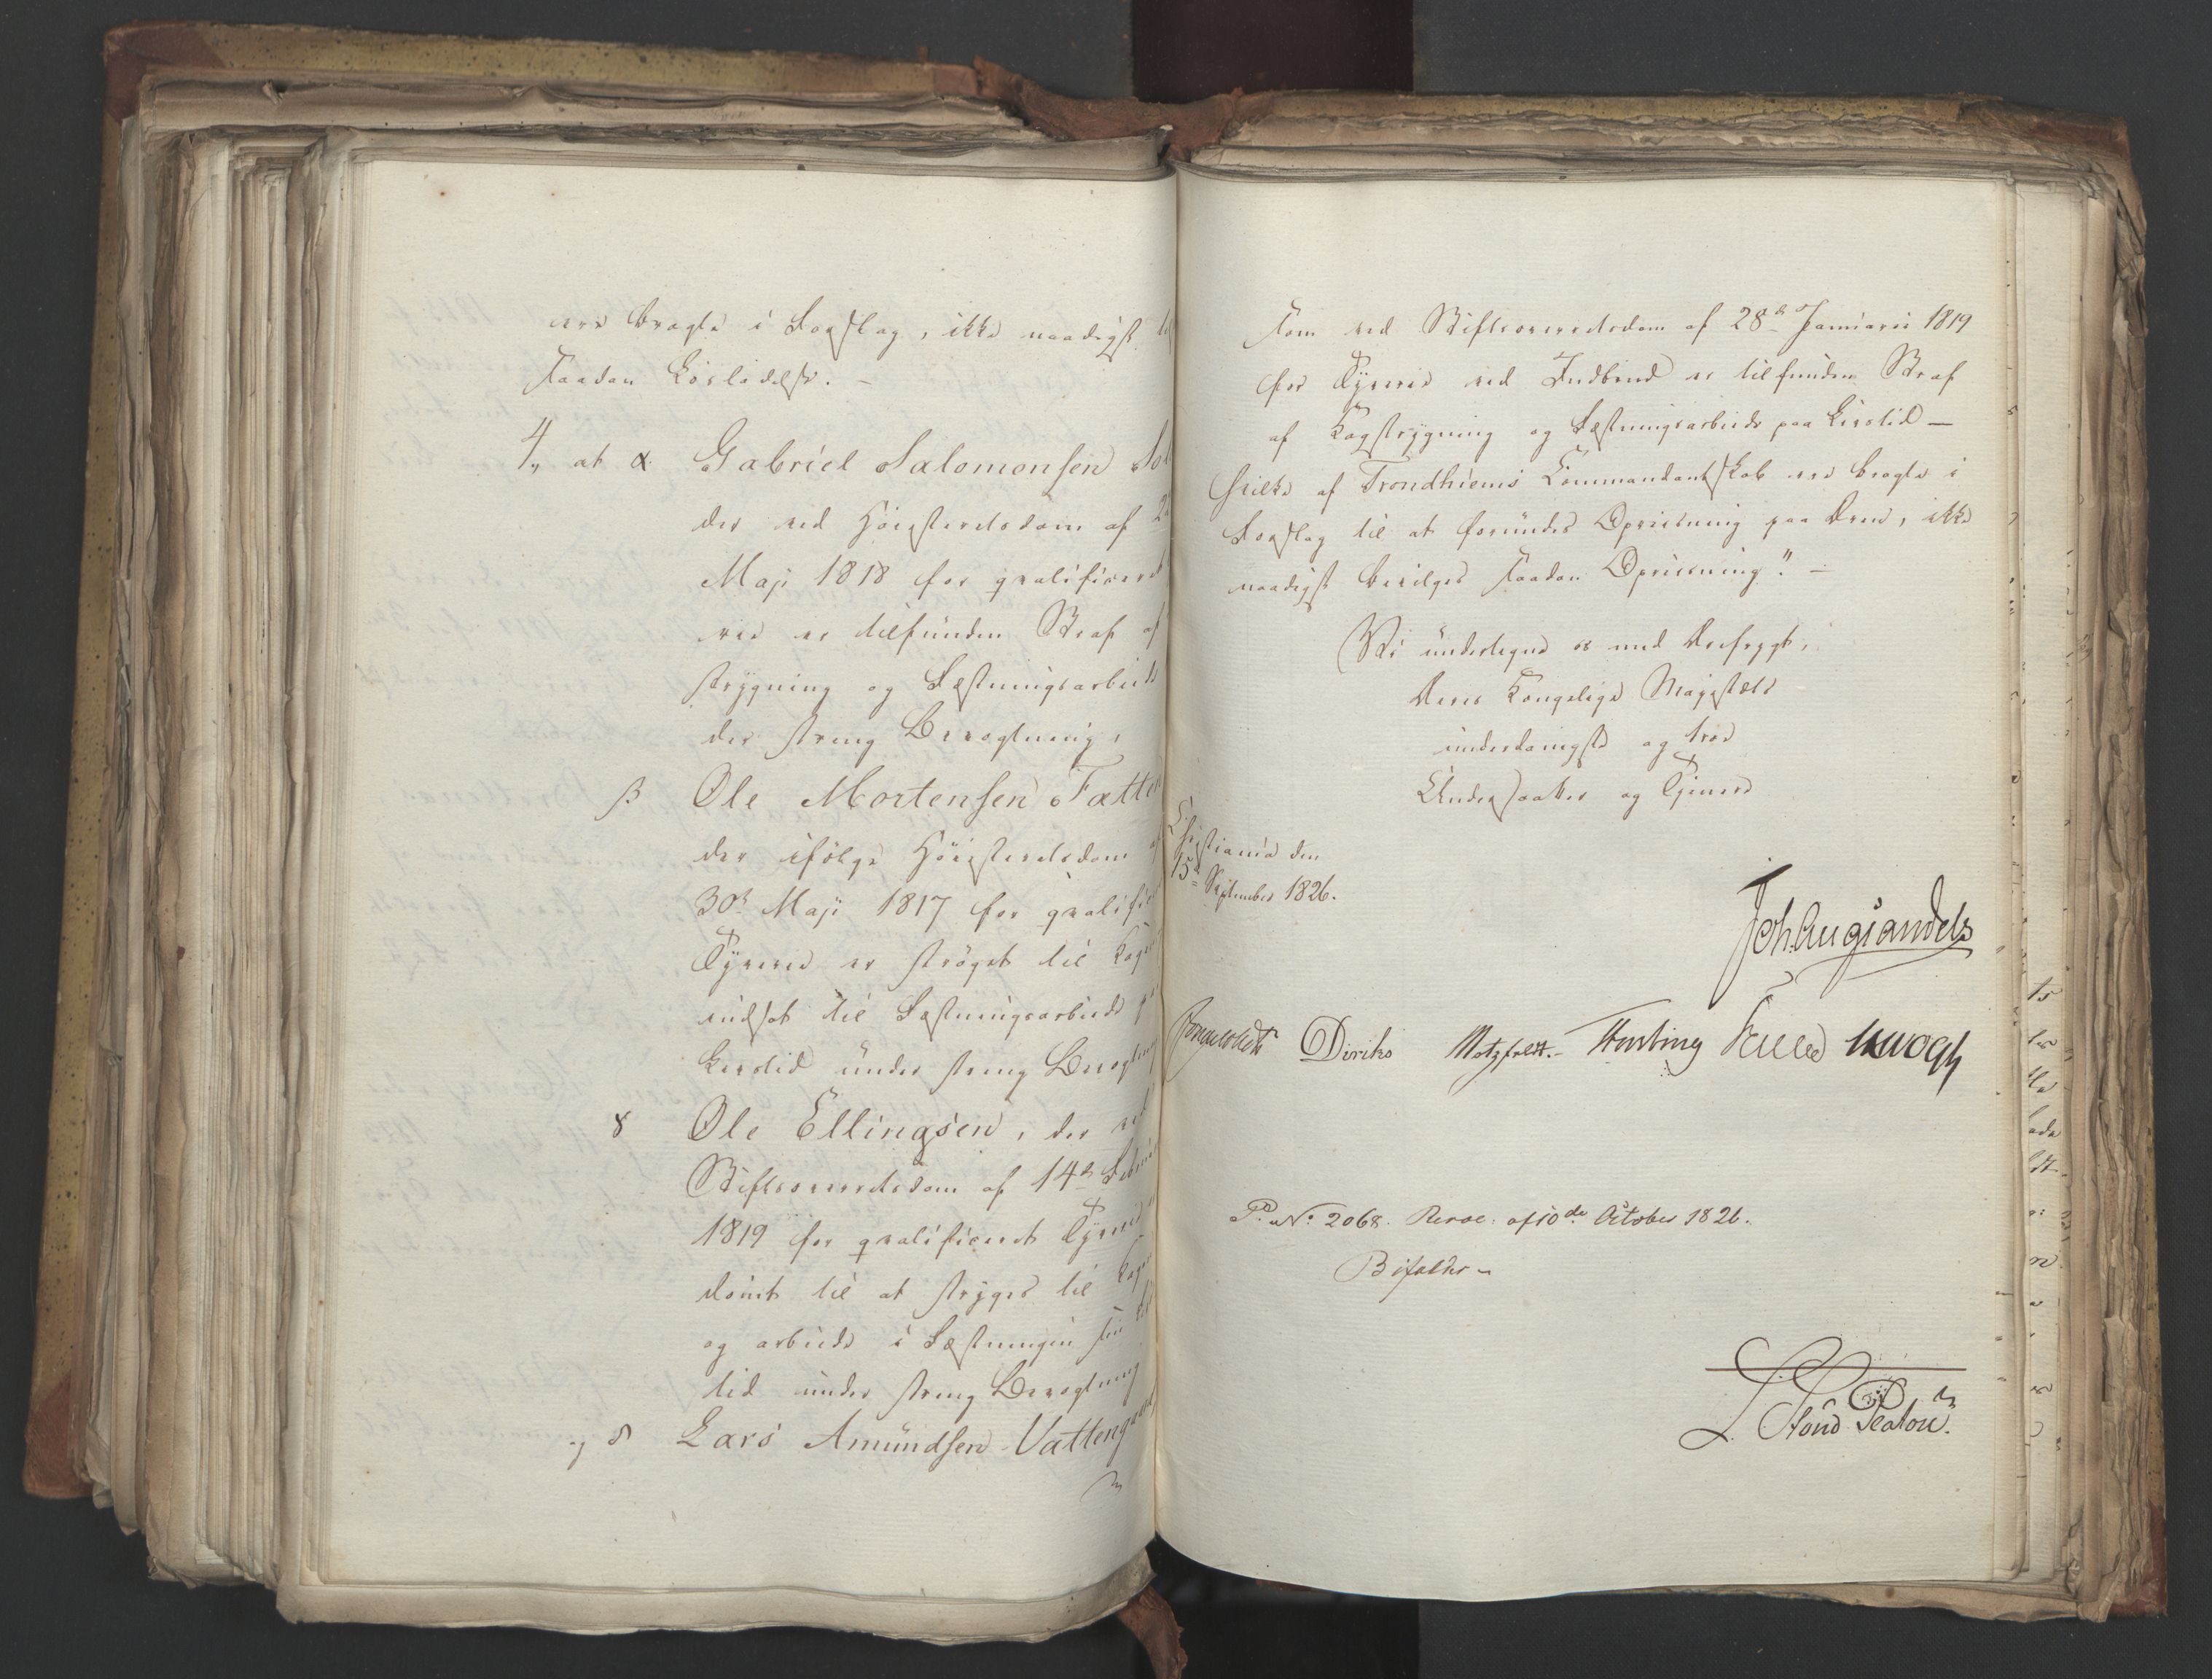 ere bragte i Forslag, ikke naadigst
saadan Løsladelse. –
4, at α Gabriel Salomonsen
der ved Høiesteretsdom af
Maji 1818 for qvalificeret
rie er tilfunden Straf af
strygning og Fæstningsarbeide
der streng Bevogtning,
β Ole Mortensen Fætten
der ifølge Høiesteretsdom af
30te Maji 1817 for qvalifi
Tyverie er strøget til Kag
indsat til Fæstningsarbeide
Livstid under streng Bevogtning
γ Ole Ellingsen, der ved
Stiftsoverretsdom af 14de
1819 for qvalificeret Tyverie
dømt til at stryges til Kag
og arbeide i Fæstningen sin
tid under streng Bevogtning
og δ Lars Amundsen Vattengaard
som ved Stiftsoverretsdom af 28de Januarii 1819
for Tyverie ved Indbrud er tilfunden Straf
af Kagstrygning og Fæstningsarbeide paa Livstid –
hvilke af Trondhiems Commandantskab ere bragte i
Forslag til at forundes Opreisning paa Æren, ikke
naadigst bevilges saadan Opreisning". –
Vi undertegne os med Ærefrygt,
Deres Kongelige Majestæts
underdanigste og troe
Undersaatter og Tjenere
Christiania den
15de September 1826.
Joh. Aug. Sandels
Diriks Motzfeldt. Fasting Krogh
P. No. 2068. Resol: af 10de October 1826.
Bifaldes